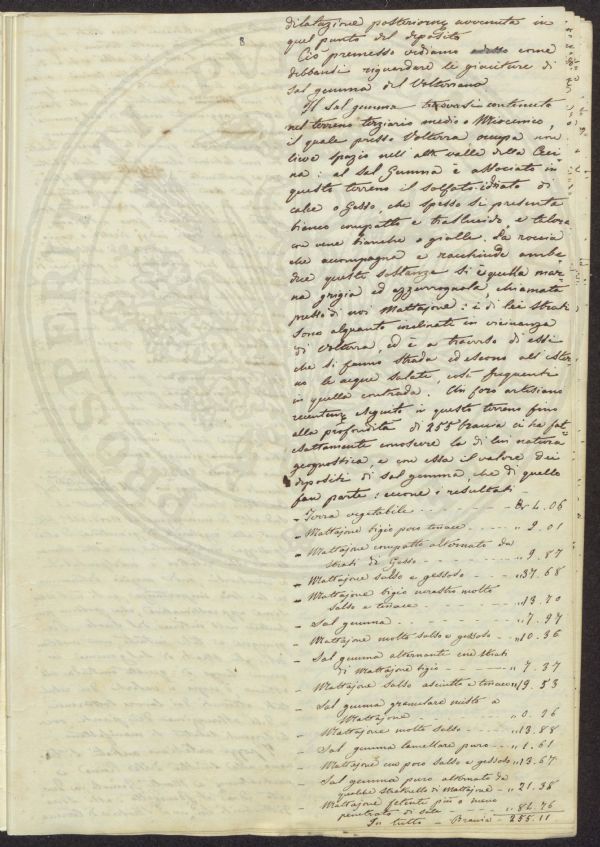 8
dilatazione posteriorme avvenuta in
quel punto del deposito
Ciò premesso vediamo adesso come
debbansi riguardare le giaciture di
Sal gemma del Volterrano
Il Sal gemma trovasi contenuto
nel terreno terziario medio o Miocenico,
il quale presso Volterra occupa un
lieve spazio nell'alta valle della Ceci=
na: al Sal Gemma è associato in
questo terreno il solfato idrato di
calce o Gesso, che spesso si presenta
bianco compatto e traslucido, e talora
con vene bianche o gialle. La roccia
che accompagna e racchiude ambe
due queste sostanze si è quella mar=
na grigia ed azzurrognola, chiamata
presso di noi Mattajone: i di lei strati
sono alquanto inclinati in vicinanza
di Volterra, ed è a traverso di essi
che si fanno strada ed escono all'ester
no le acque salate, così frequenti
in quella contrada. Un foro artesiano
recentem eseguito in questo terreno fino
alla profondità di 255 braccia ci ha fat=
esattamente conoscere la di lui natura
geognostica, e con essa il valore dei
depositi di Sal gemma, che di quello
fan parte: eccone i resultati
- Terra vegetabile - - - Br 4.06
- Mattajone bigio poco tenace - - - " 2.01
- Mattajone compatto alternato da
strati di Gesso - - - " 9.87
- Mattajone salso e gessoso - - - " 37.68
- Mattajone bigio nerastro molto
salso e tenace - - - " 13.70
- Sal gemma - - - " 7.97
- Mattajone molto salso e gessoso - - " 10.36
- Sal gemma alternante con strati
di Mattajone bigio - - - " 7.37
- Mattajone salso asciutto e tenace " 19.53
- Sal gemma granulare misto a
Mattajone - - - " 0.96
- Mattajone molto salso - - - " 13.88
- Sal gemma lamellare puro - - " 1.61
- Mattajone con poco salso e gessoso " 13.67
- Sal gemma puro alternato da
qualche straterello di Mattajone - " 21.35
- Mattajone fetente più o meno
penetrato di sale - - - " 84.76
In tutto - Braccia - 255.11